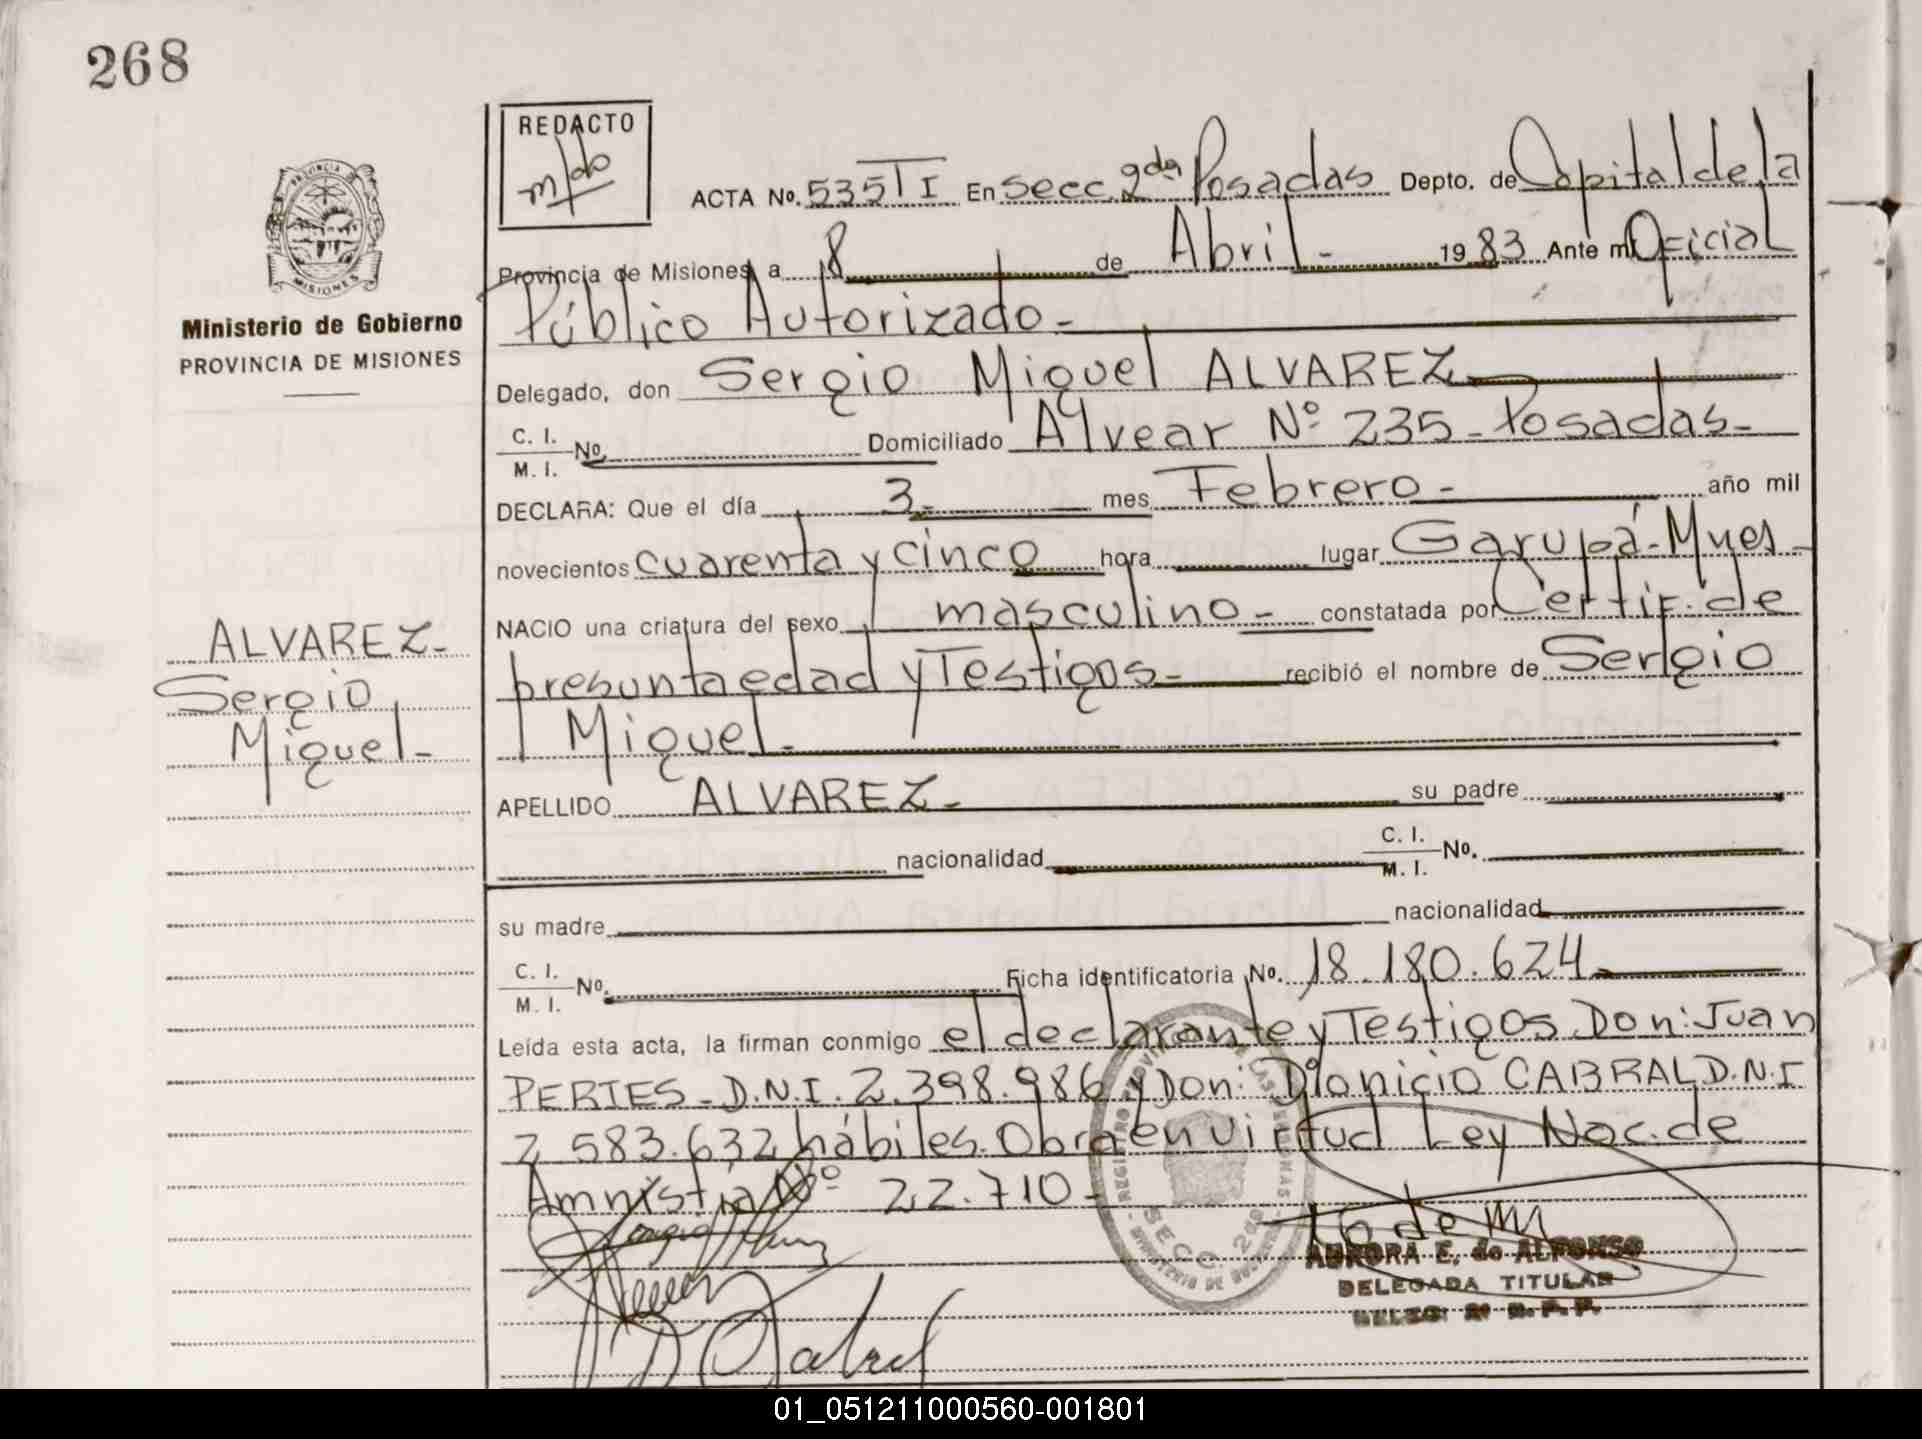 268
REDACTO
PROVINCIA DE
MISIONES
Ministerio de Gobierno
PROVINCIA DE MISIONES
ACTA No. 535 TI En Secc. 2da Posadas Depto. de Capital de la
Provincia de Misiones a 8 de Abril - 1983 Ante mi Oficial
Público Autorizado -
Delegado, don Sergio Miguel ALVAREZ
C. I. / M. I. No. Domiciliado Alvear Nº 235 - Posadas -
DECLARA: Que el día 3 - mes Febrero - año mil
novecientos cuarenta y cinco hora lugar Garupá - Mnes -
NACIO una criatura del sexo masculino - constatada por Certif. de
presunta edad y Testigos - recibió el nombre de Sergio
Miguel -
APELLIDO ALVAREZ - su padre
nacionalidad C. I. / M. I. No.
su madre nacionalidad
C. I. / M. I. No. Ficha identificatoria No. 18.180.624
Leída esta acta, la firman conmigo el declarante y Testigos Don: Juan
PERIES - D.N.I. 2.398.986 y Don: Dionicio CABRAL D.N.I
2 583.632 hábiles. Obra en virtud Ley Nac. de
Amnistia Nº 22.710 -
ALVAREZ -
Sergio
Miguel -
SECC. 2da
AURORA E. de ALFONSO
DELEGADA TITULAR
01_051211000560-001801